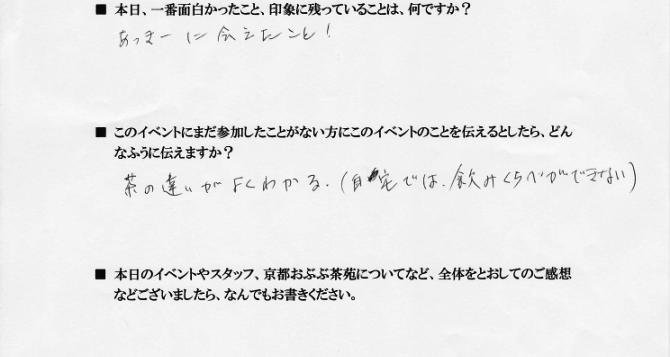 ■ 本日、一番面白かったこと、印象に残っていることは、何ですか？
あっきーに会えたこと！
■ このイベントにまだ参加したことがない方にこのイベントのことを伝えるとしたら、どん
なふうに伝えますか？
茶の違いがよくわかる。(自宅では、飲みくらべができない)
■ 本日のイベントやスタッフ、京都おぶぶ茶苑についてなど、全体をとおしてのご感想
などございましたら、なんでもお書きください。